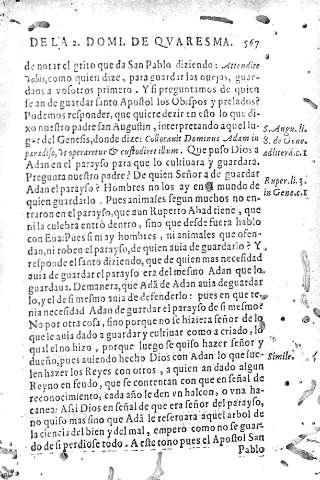 DE LA 2. DOMI. DE QVARESMA. 567
de notar el grito que da San Pablo diziendo: Attendite
vobis, como quien dize, para guardar las ouejas, guar-
daos a vosotros primero. Y si preguntamos de quien
se an de guardar santo Apostol los Obispos y prelados?
Podemos responder, que quiere dezir en esto lo que di-
xo nuestro padre san Augustin, interpretando aquel lu-
gar del Genesis, donde dize: Collocauit Dominus Adam in
paradiso, vt operaretur & custodiret illum. Que puso Dios a
Adan en el parayso para que lo cultiuara y guardara.
Pregunta nuestro padre? De quien Señor a de guardar
Adan el parayso? Hombres no los ay en el mundo de
quien guardarlo. Pues animales segun muchos no en-
traron en el parayso, que aun Ruperto Abad tiene, que
ni la culebra entrò dentro, sino que desde fuera hablo
con Eua: Pues si ni ay hombres, ni animales que ofen-
dan, ni roben el parayso, de quien auia de guardarlo? Y
responde el santo diziendo, que de quien mas necessidad
auia de guardar el parayso era del mesmo Adan que lo
guardaua. De manera, que Adã de Adan auia de guardar
lo, y el de si mesmo auia de defenderlo: pues en que te-
nia necessidad Adan de guardar el parayso de si mesmo?
No por otra cosa, sino porque no le hiziera señor de lo
que le auia dado a guardar y cultiuar como a criado, lo
qual el no hizo, porque luego se quiso hazer señor y
dueño, pues auiendo hecho Dios con Adan lo que sue-
len hazer los Reyes con otros, a quien an dado algun
Reyno en feudo, que se contentan con que en señal de
reconocimiento, cada año le den vn halcon, o vna ha-
canea: Asi Dios en señal de que era señor del parayso,
no quiso mas sino que Adã le reseruara aquel arbol de
la ciencia del bien y del mal, empero como no se guar-
do de si perdiose todo. A este tono pues el Apostol San
Pablo
S. Augu. li.
8. de Gene.
ad literã. c. 1
Ruper. li. 3.
in Gene. c. 1
Simile.